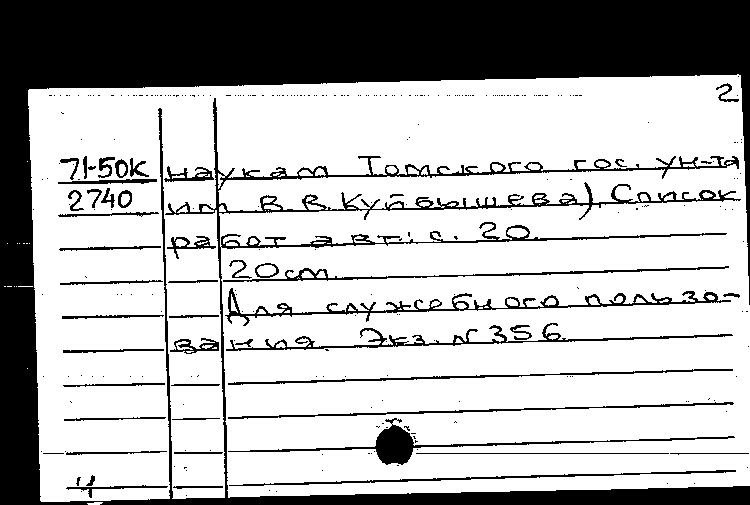 2
71-50К наукам Томского гос. ун-та
2740 им В.В.Куйбышева). Список
работ авт.: с. 20.
20см.
Для служебного пользо-
вания. Экз. № 356.
4